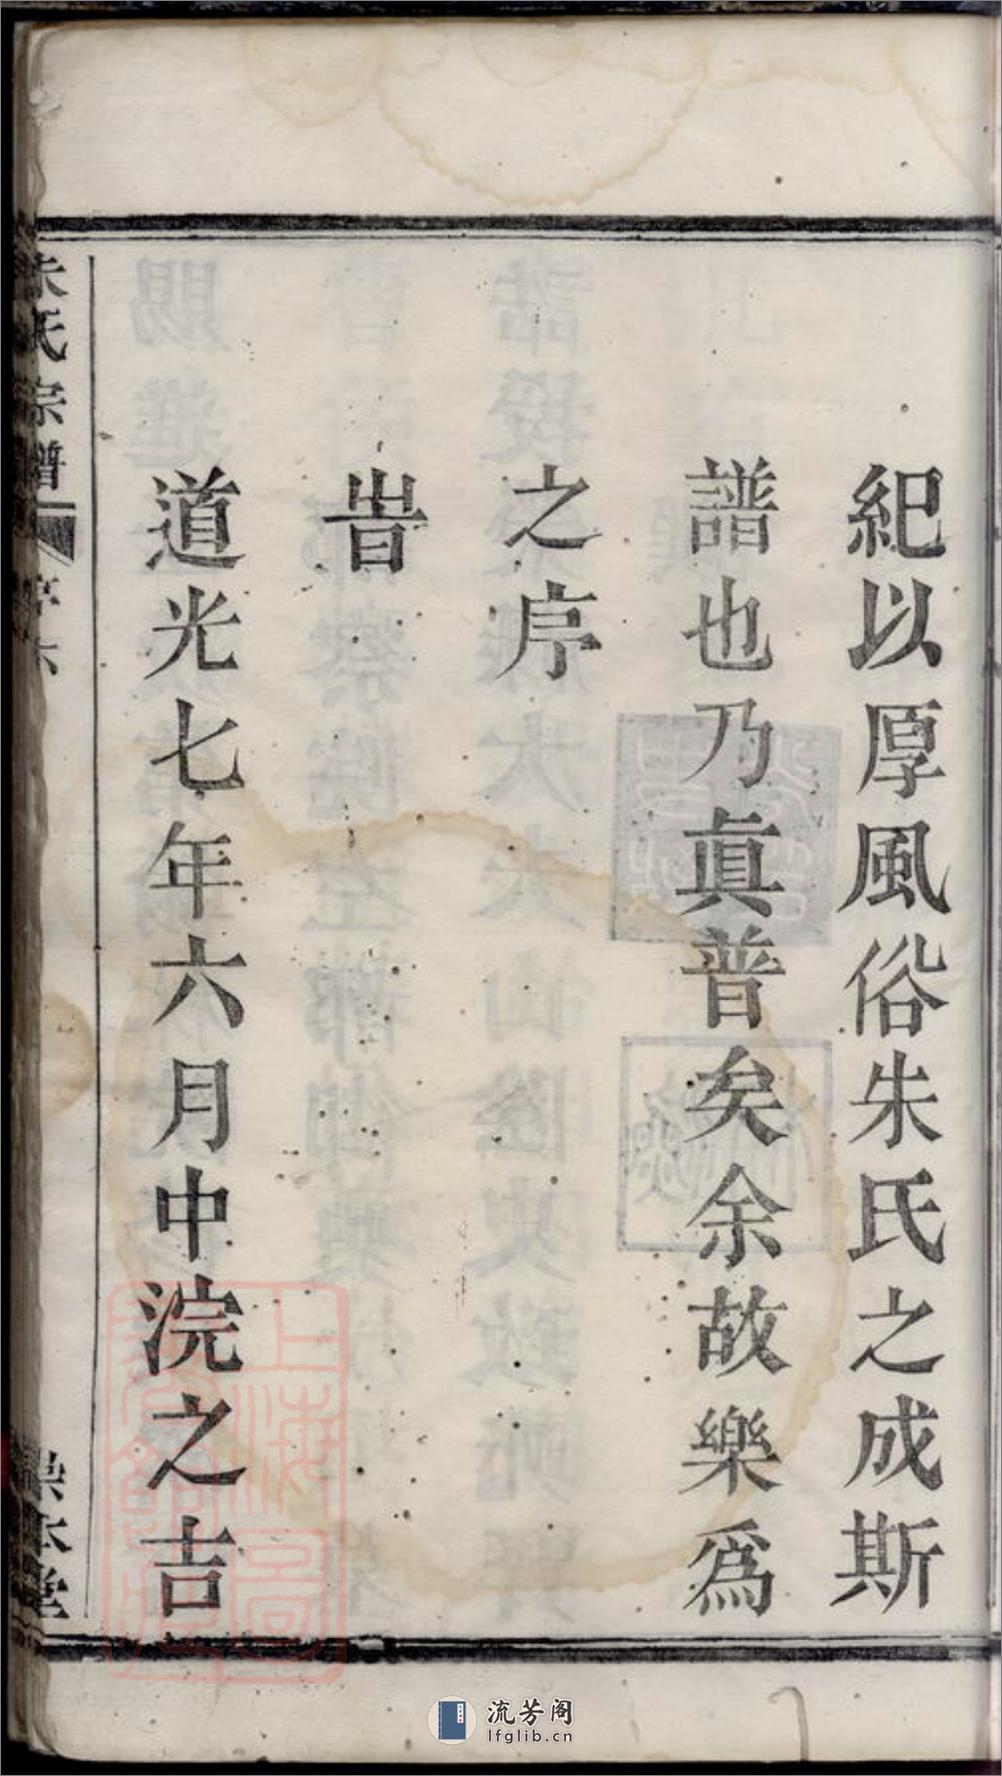 紀以厚風俗朱氏之成斯
譜也乃眞普矣余故樂爲
之序
旹
道光七年六月中浣之吉
朱氏宗譜
序
堂
上海圖
流芳阁
lfglib.cn